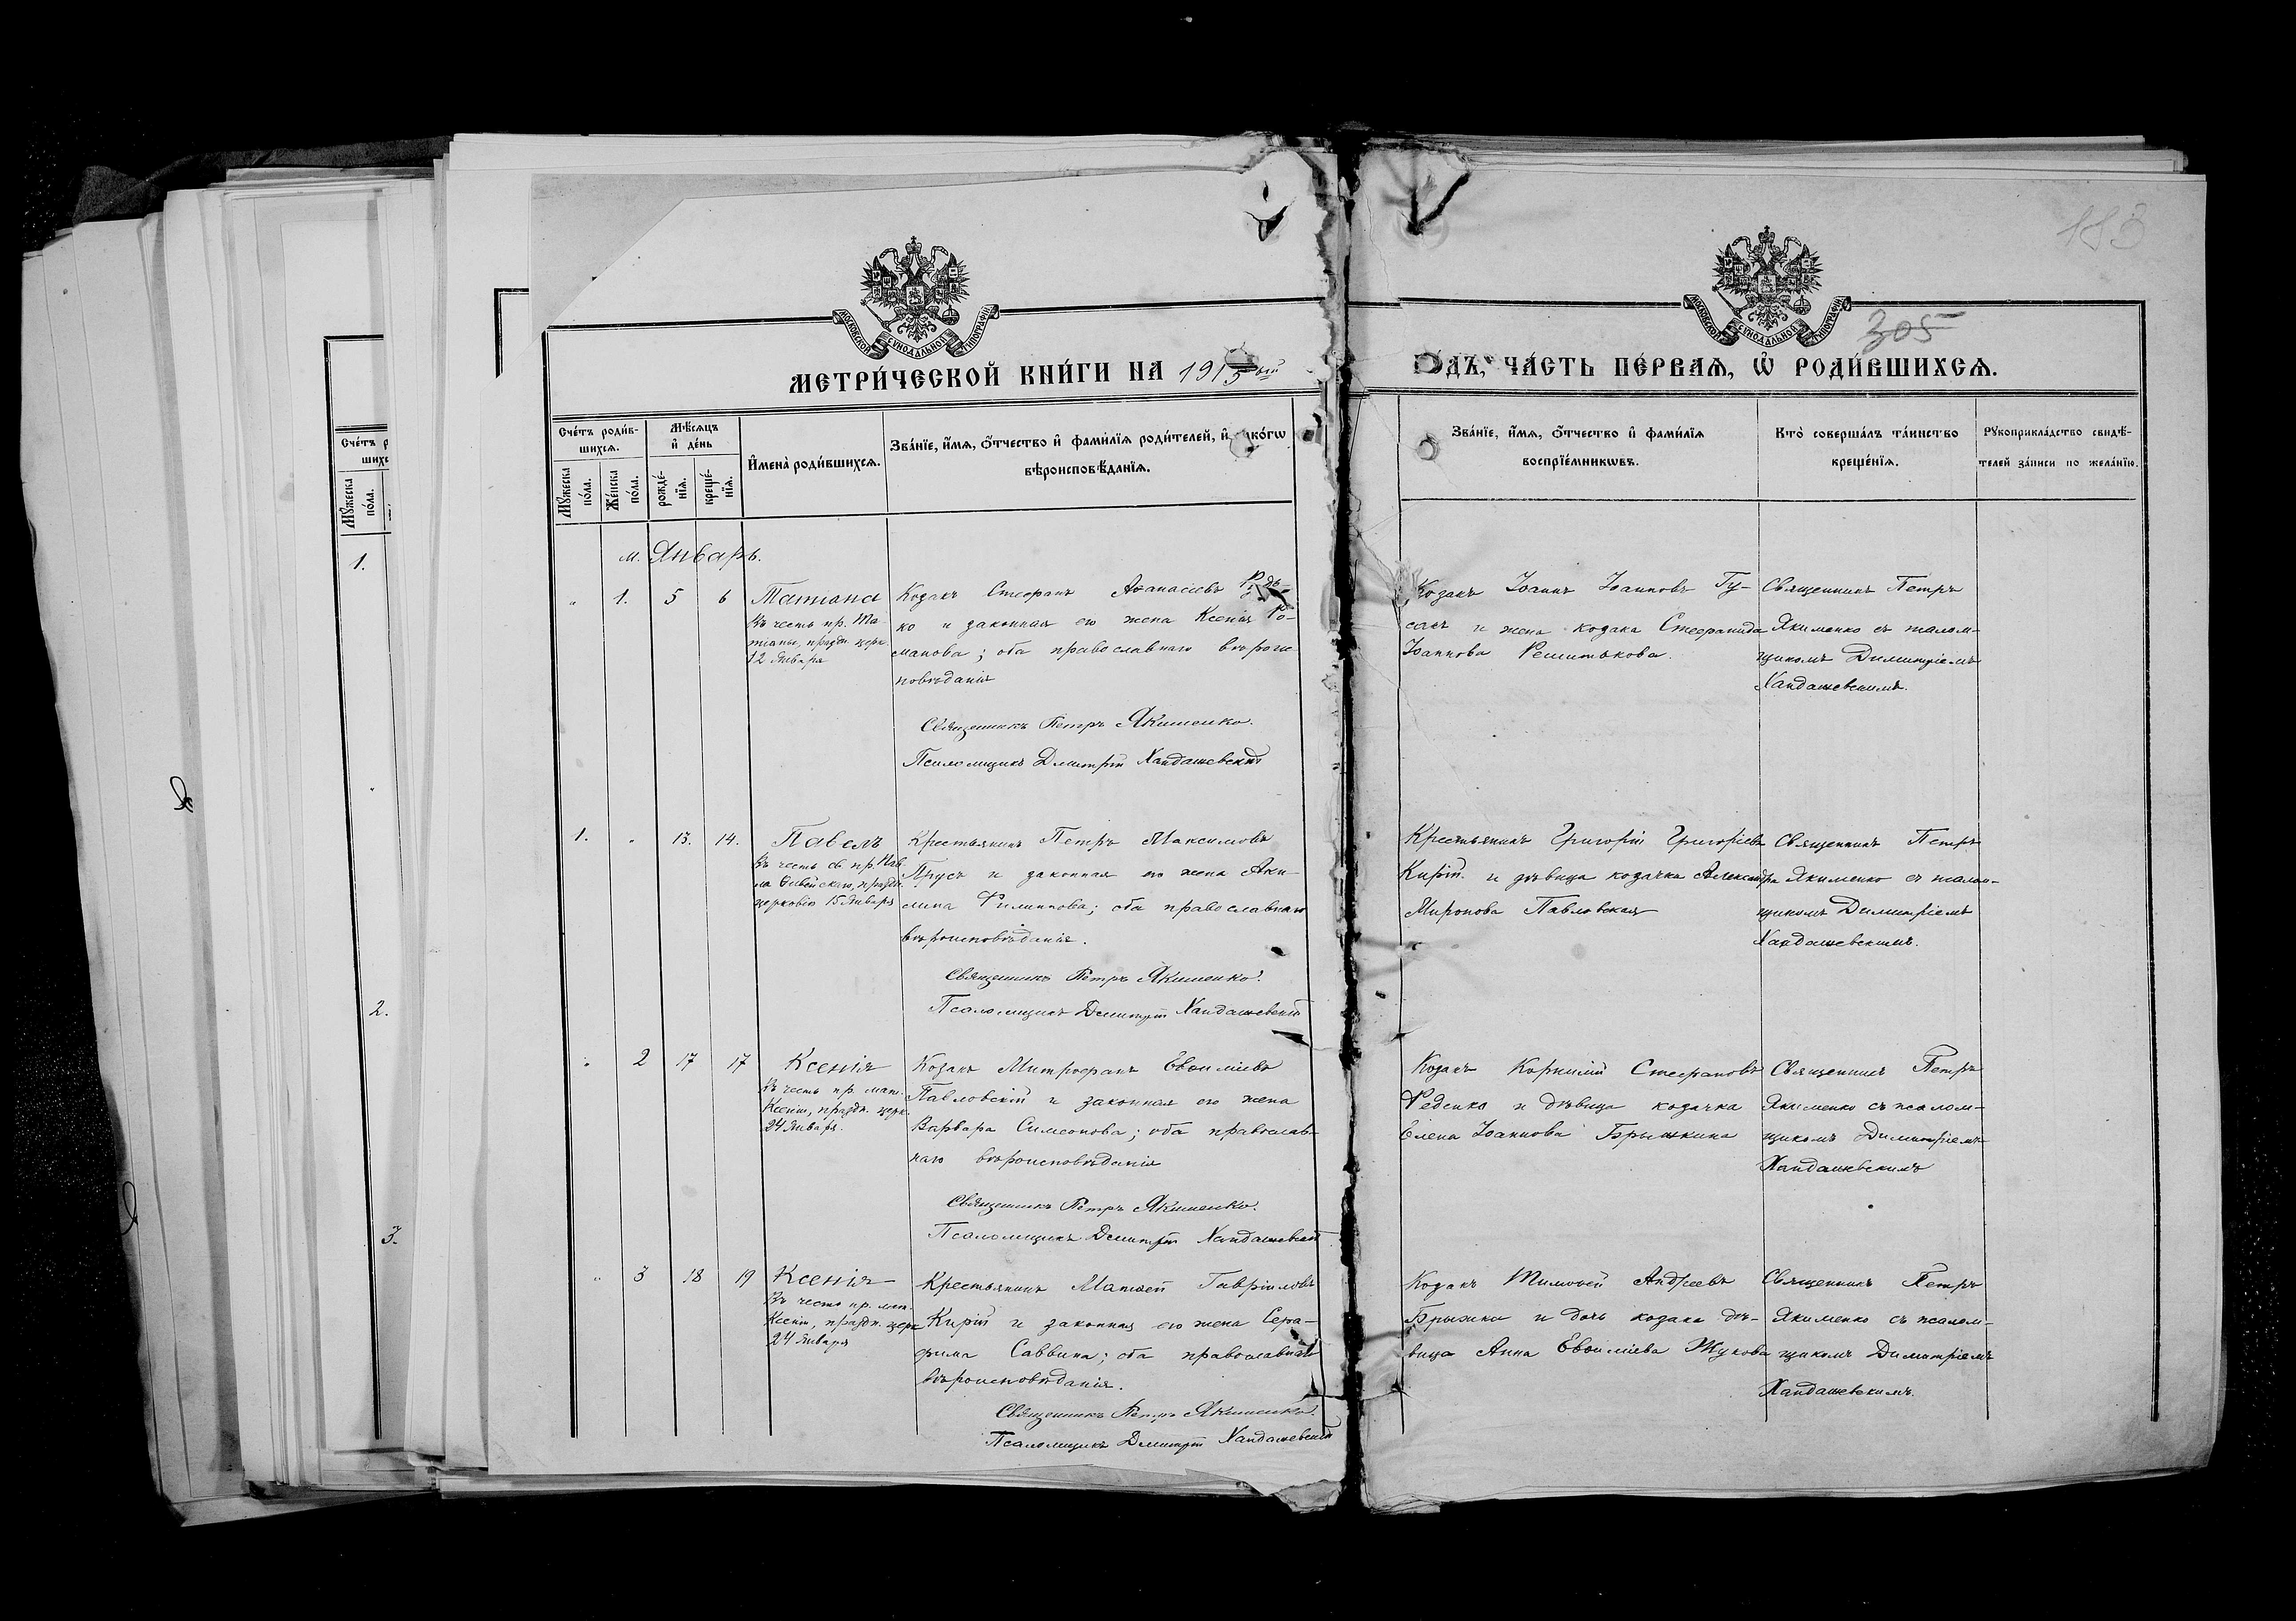 183
305
МОСКОВСКОЙ СУНОДАЛЬНОЙ ТИПОГРАФІИ
МОСКОВСКОЙ СУНОДАЛЬНОЙ ТИПОГРАФІИ
МЕТРИ́ЧЕСКОЙ КНИ́ГИ НА 1915 ый
ДЪ, ЧА́СТЬ ПЕ́РВАѦ, Ѡ҆ РОДИ́ВШИХСѦ.
Сче́тъ роди́в-
шихсѧ.
Мꙋ́жеска по́ла.
Же́нска по́ла.
Мѣ́сѧцъ
и҆ де́нь
рожде́-
нїѧ.
креще́-
нїѧ.
И҆мена̀ роди́вшихсѧ.
Зва́нїе, и҆́мѧ, ѻ҆́тчество и҆ фами́лїѧ роди́телей, и҆
вѣроисповѣ́данїѧ.
Зва́нїе, и҆́мѧ, ѻ҆́тчество и҆ фами́лїѧ
воспрїе́мникѡвъ.
Кто̀ соверша́лъ та́инство
креще́нїѧ.
Рꙋкоприкла́дство свидѣ́-
телей за́писи по жела́нїю.
Сче́тъ
Мꙋ́жеска по́ла.
1.
2.
3.
м. Январь.
" 1. 5 6 Татіана
Въ честь пр. Та-
тіаны, праздн. церк.
12 Января
Козакъ Стефанъ Аѳанасіевъ
ко и законная его жена Ксенія Ро-
манова; оба православнаго вѣроис
повѣданія
Священникъ Петръ Якименко.
Псаломщикъ Дмитрій Хандашевскій
Козакъ Іоаннъ Іоанновъ Гу-
и жена козака Стефанида
Іоаннова Решитькова.
Священникъ Петръ
Якименко съ псалом-
щикомъ Димитріемъ
Хандашевскимъ.
1. " 13. 14. Павелъ
Въ честь св. пр. Пав-
ла Ѳивейскаго, праздн.
церковію 15 Января
Крестьянинъ Петръ Максимовъ
Прусъ и законная его жена Аки-
лина Филиппова; оба православнаго
вѣроисповѣданія.
Священникъ Петръ Якименко.
Псаломщикъ Димитрій Хандашевскій
Крестьянинъ Григорій Григоріевъ
Кирій и дѣвица козачка Александра
Миронова Павловская
Священникъ Петръ
Якименко съ псалом-
щикомъ Димитріемъ
Хандашевскимъ.
" 2 17 17 Ксенія
Въ честь пр. мат.
Ксеніи, праздн. церк.
24 Января.
Козакъ Митрофанъ Евѳиміевъ
Павловскій и законная его жена
Варвара Симеонова; оба православ-
наго вѣроисповѣданія
Священникъ Петръ Якименко.
Псаломщикъ Димитрій Хандашевскій
Козакъ Корнилій Стефановъ
Реденко и дѣвица козачка
Елена Іоаннова Брыжкина
Священникъ Петръ
Якименко съ псалом-
щикомъ Димитріемъ
Хандашевскимъ
" 3 18 19 Ксенія
Въ честь пр. мат.
Ксеніи, праздн. церк
24 Января
Крестьянинъ Матѳей Гавріиловъ
Кирій и законная его жена Сера-
фима Саввина; оба православнаго
вѣроисповѣданія.
Священникъ Петръ Якименко.
Псаломщикъ Дмитрій Хандашевскій
Козакъ Тимоѳей Андреевъ
Брыжка и дочь козака дѣ-
вица Анна Евѳиміева Жукова
Священникъ Петръ
Якименко съ псалом-
щикомъ Димитріемъ
Хандашевскимъ.